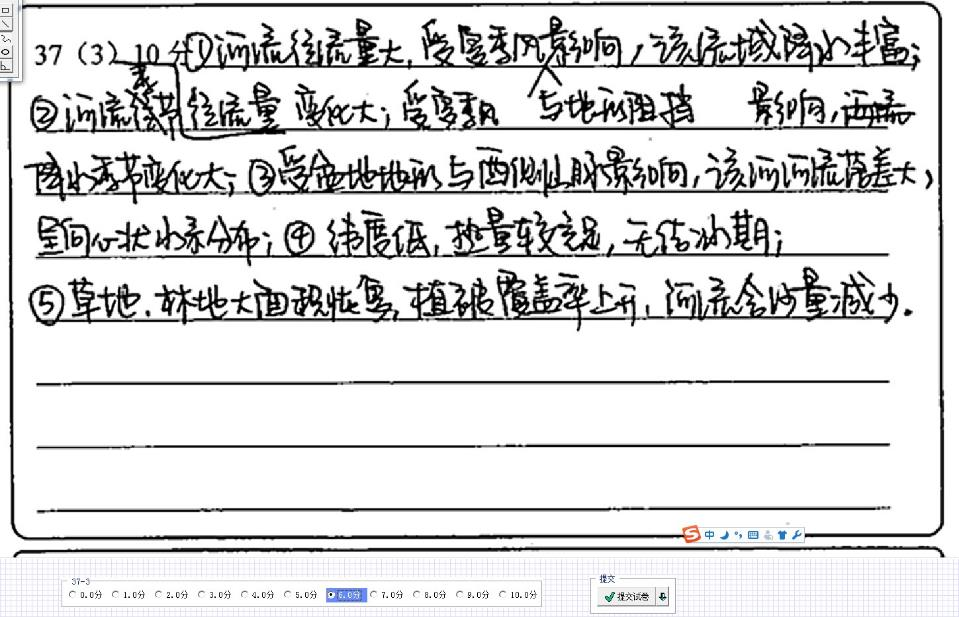 37（3）10分①河流径流量大，受夏季风影响，该流域降水丰富；
②河流季节径流量 变化大；受夏季风 与地形阻挡 影响，
降水季节变化大；③受盆地地形与西侧山脉影响，该河河流落差大，
呈向心状水系分布；④纬度低，热量较充足，无结冰期；
⑤草地、林地大面积恢复，植被覆盖率上升，河流含沙量减少。
中
37-3
0.0分 1.0分 2.0分 3.0分 4.0分 5.0分 6.0分 7.0分 8.0分 9.0分 10.0分
提交
提交试卷